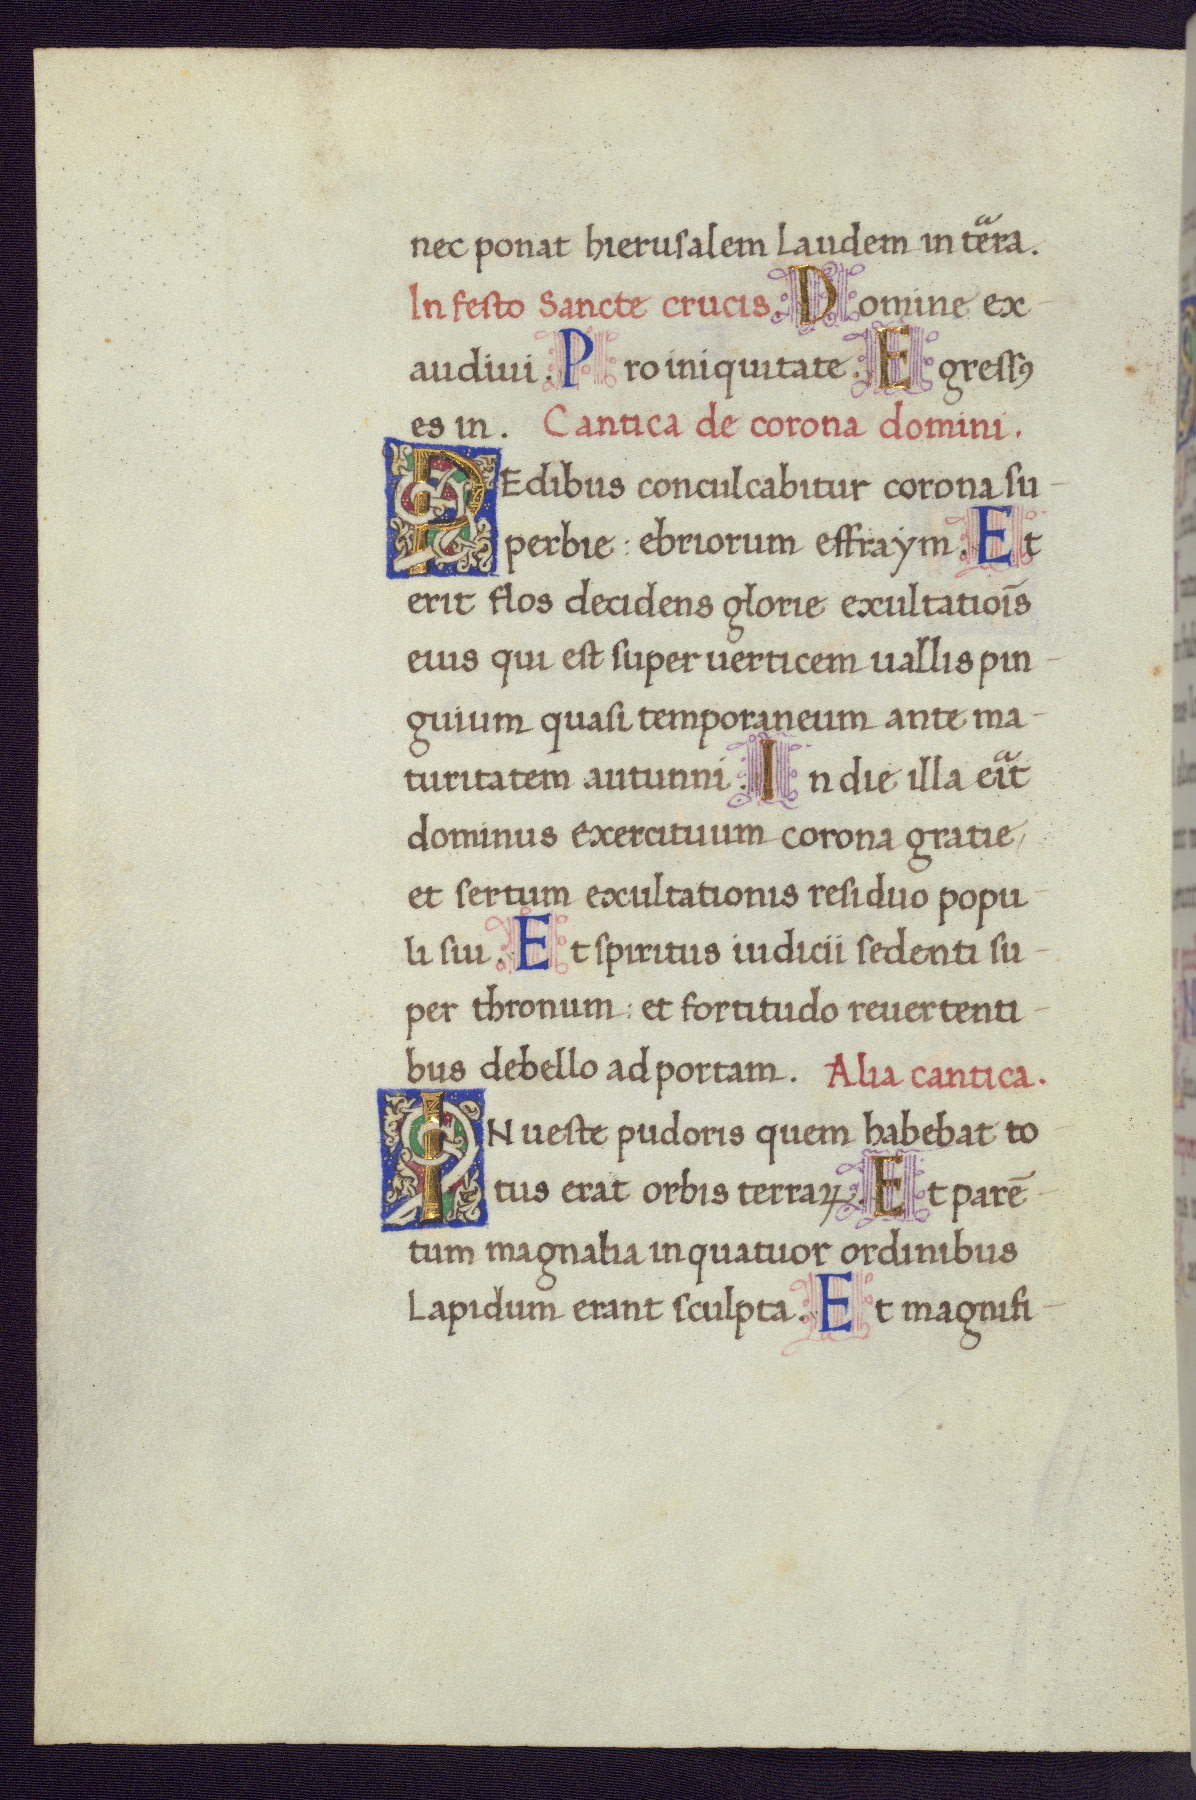 nec ponat hierusalem laudem in terͣa.
In festo Sancte crucis. Domine ex-
audiui. Pro iniquitate. Egressꝰ
es in. Cantica de corona domini.
PEdibus conculcabitur corona su-
perbie : ebriorum effraym. Et
erit flos decidens glorie exultatiōis
eius qui est super uerticem uallis pin-
guium quasi temporaneum ante ma-
turitatem autunni. In die illa eͣit
dominus exercituum corona gratie/
et sertum exultationis residuo popu-
li sui. Et spiritus iudicii sedenti su-
per thronum : et fortitudo reuertenti-
bus debello ad portam. Alia cantica.
IN ueste pudoris quem habebat to-
tus erat orbis terraꝝ. Et parē-
tum magnalia in quatuor ordinibus
Lapidum erant sculpta. Et magnifi-